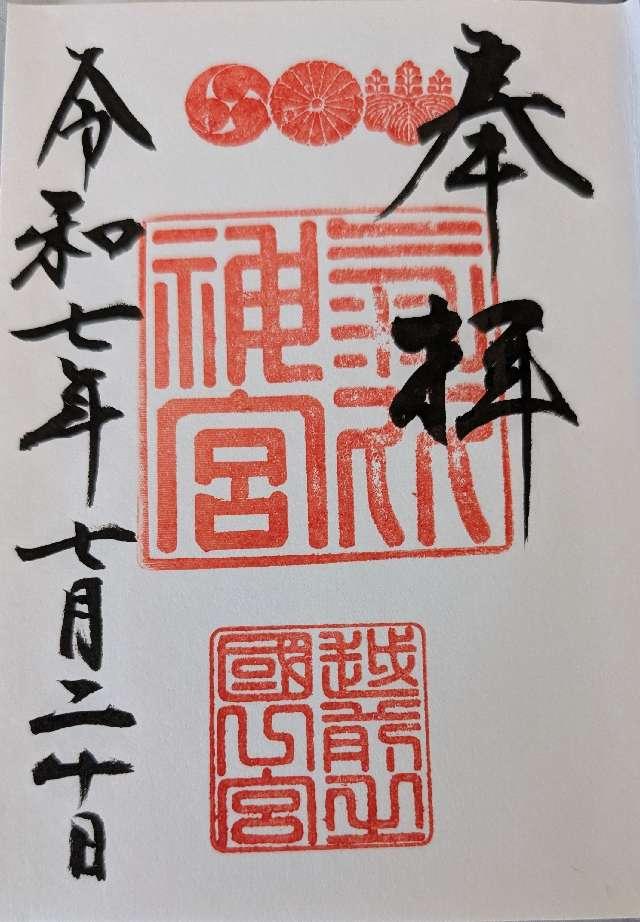 奉拝
氣比
神宮
越前之
國宮
令和七年七月二十日